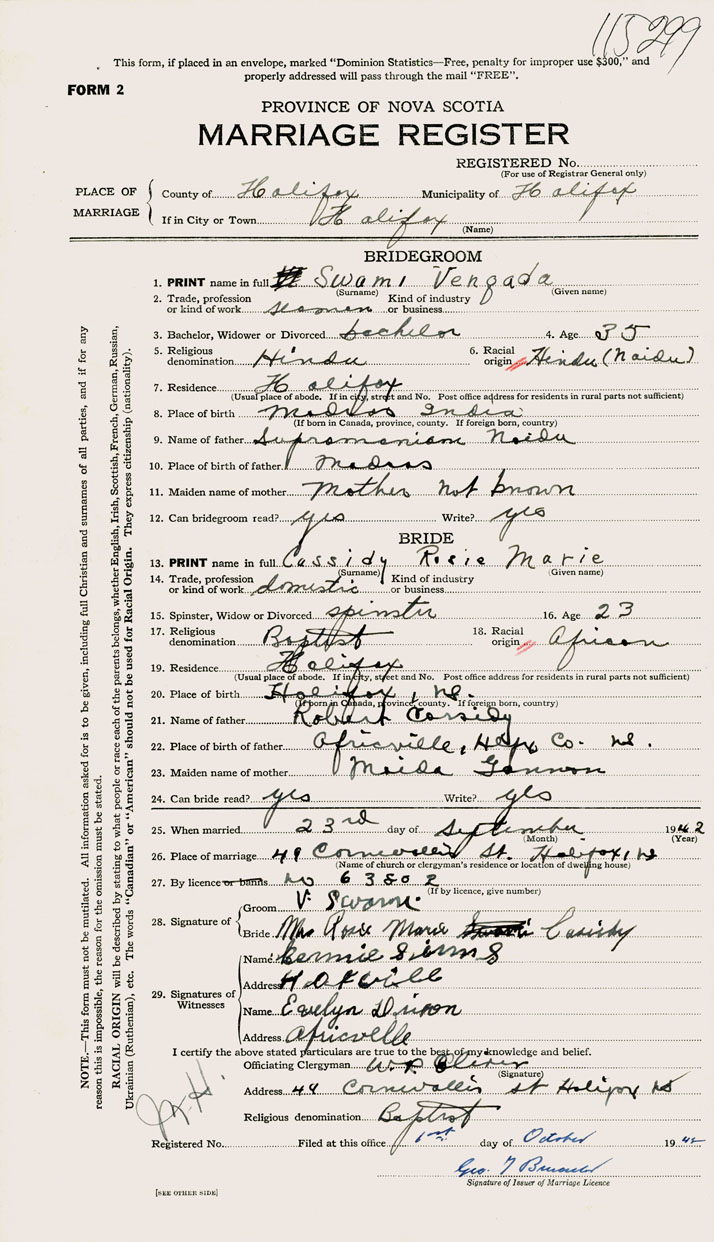 115299
This form, if placed in an envelope, marked “Dominion Statistics—Free, penalty for improper use $300,” and
properly addressed will pass through the mail “FREE”.
FORM 2
PROVINCE OF NOVA SCOTIA
MARRIAGE REGISTER
REGISTERED No.
(For use of Registrar General only)
PLACE OF MARRIAGE
County of Halifax Municipality of Halifax
If in City or Town Halifax
(Name)
BRIDEGROOM
1. PRINT name in full Swami Vengada
(Surname) (Given name)
2. Trade, profession or kind of work seaman Kind of industry or business
3. Bachelor, Widower or Divorced bachelor 4. Age 35
5. Religious denomination Hindu 6. Racial origin Hindu (Naidu)
7. Residence Halifax
(Usual place of abode. If in city, street and No. Post office address for residents in rural parts not sufficient)
8. Place of birth Madras India
(If born in Canada, province, county. If foreign born, country)
9. Name of father Supramaniam Naidu
10. Place of birth of father Madras
11. Maiden name of mother Mother not known
12. Can bridegroom read? yes Write? yes
BRIDE
13. PRINT name in full Cassidy Rosie Marie
(Surname) (Given name)
14. Trade, profession or kind of work domestic Kind of industry or business
15. Spinster, Widow or Divorced spinster 16. Age 23
17. Religious denomination Baptist 18. Racial origin African
19. Residence Halifax
(Usual place of abode. If in city, street and No. Post office address for residents in rural parts not sufficient)
20. Place of birth Halifax, NS.
(If born in Canada, province, county. If foreign born, country)
21. Name of father Robert Cassidy
22. Place of birth of father Africville, Hfx Co. NS.
23. Maiden name of mother Maida Gannon
24. Can bride read? yes Write? yes
25. When married 23rd day of September 1942
(Month) (Year)
26. Place of marriage 49 Cornwallis St. Halifax, NS
(Name of church or clergyman's residence or location of dwelling house)
27. By licence or banns No 63802
(If by licence, give number)
28. Signature of
Groom V. Swami
Bride Mrs Rosie Marie Swami Casidy
29. Signatures of Witnesses
Name Bernnie Simms
Address
Name Evelyn Dixon
Address Africville
I certify the above stated particulars are true to the best of my knowledge and belief.
Officiating Clergyman W. P. Oliver
(Signature)
Address 49 Cornwallis St Halifax NS
Religious denomination Baptist
Registered No. Filed at this office 1st day of October 1942
Geo. T
Signature of Issuer of Marriage Licence
[SEE OTHER SIDE]
NOTE.—This form must not be mutilated. All information asked for is to be given, including full Christian and surnames of all parties, and if for any
reason this is impossible, the reason for the omission must be stated.
RACIAL ORIGIN will be described by stating to what people or race each of the parents belongs, whether English, Irish, Scottish, French, German, Russian,
Ukrainian (Ruthenian), etc. The words “Canadian” or “American” should not be used for Racial Origin. They express citizenship (nationality).